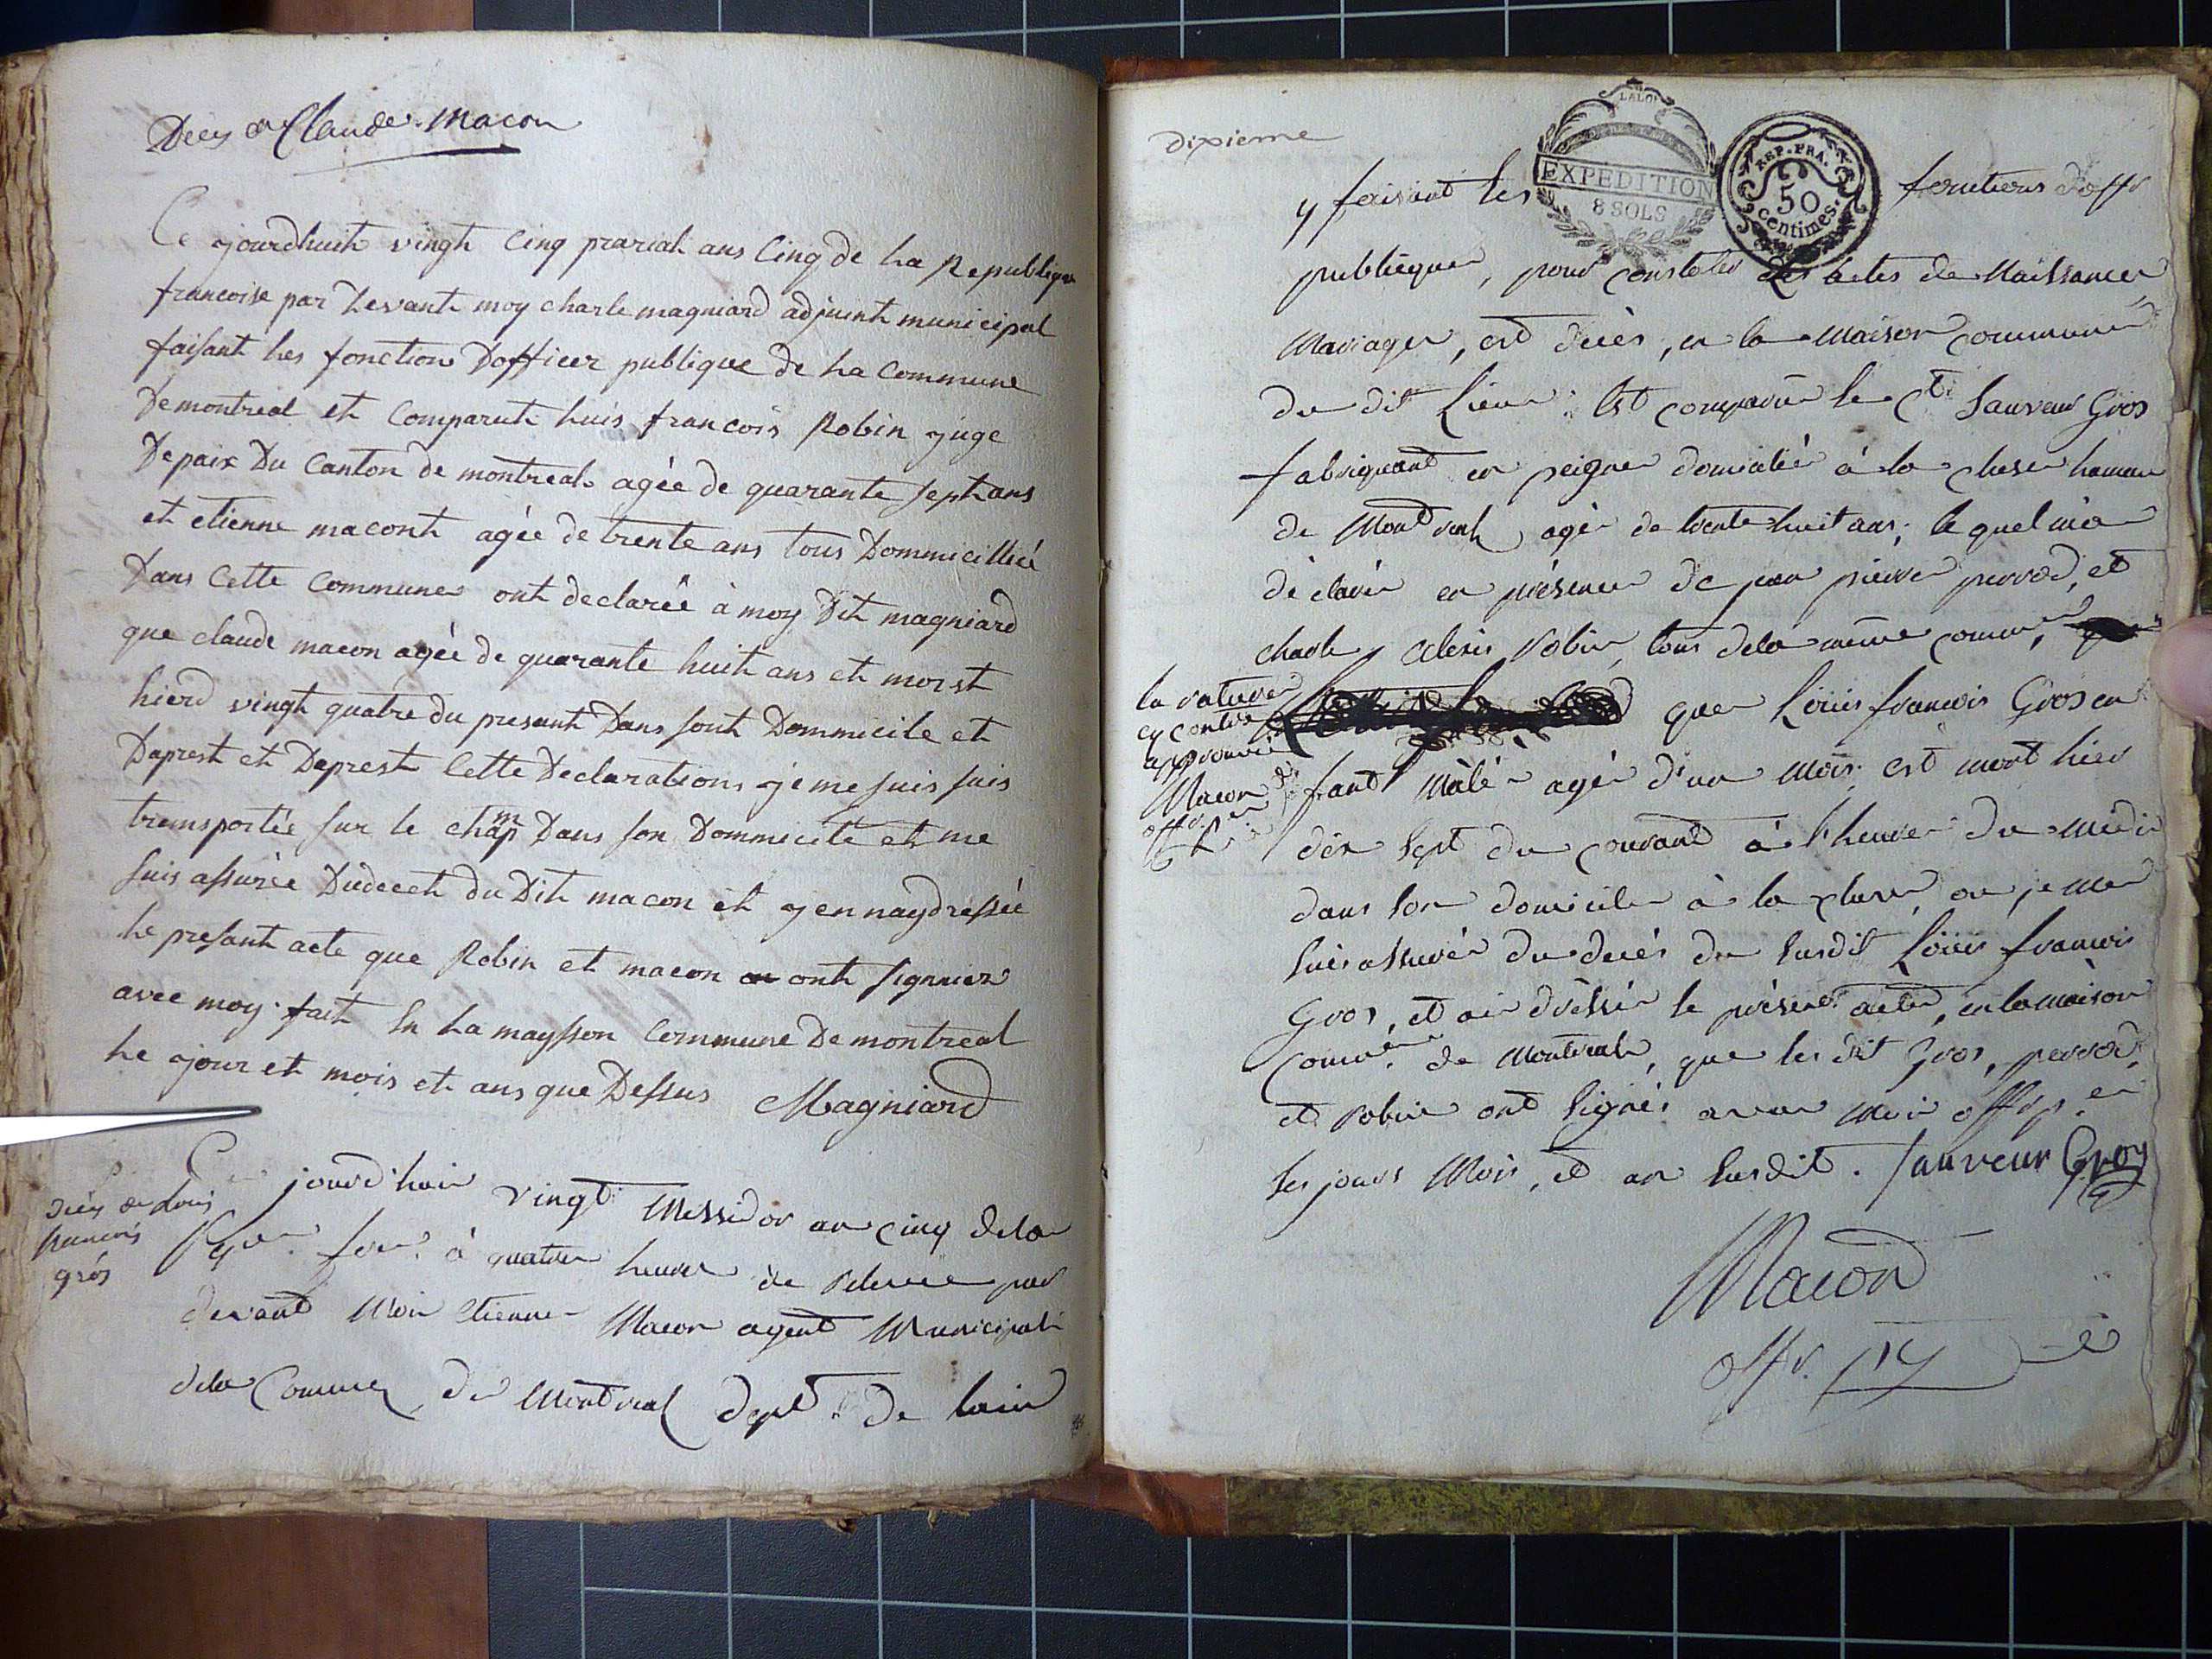 Decy de Claude Macon
Ce jourdhuit vingt cinq prarial ans Cinq de La Republique
francoise par Devant moy charle magniard adjuint municipal
faisant les fonction Dofficer publique de La Commune
Demontreal et Comparut luis francois Robin juge
Depaix Du Canton de montreal agée de quarante sept ans
et etienne macont agée de trente ans tous Dommicillié
Dans Cette Commune ont declarée à moy Dit magniard
que claude macon agée de quarante huit ans et morst
hierd vingt quatre du presant Dans sont Dommicile et
Daprest et Daprest Cette Declarations je me suis suis
transportée sur le champ Dans son Dommicile et me
suis assurée Dudecet du Dit macon et jennaydressée
le presant acte que Robin et macon ont signiez
avec moy fait En La maysson Commune De montreal
le jour et mois et ans que Dessus Magniard
Décy de Louis
francois
grós
Ce jourd'huix vingt Messidor an cinq dela
fse. à quatre heures de relevée par
devant Moi Etienne Macon agent Municipal
dela Commune de Montreal dept. de lain
dixieme
LALOI
EXPEDITION
8 SOLS
REP. FRA.
50
centimes.
y faisant les fonctions d'offr
publique, pour constater les actes de Naissance
Mariages, et décès, en la Maison commune
du dit Lieu. Est comparu le Ct. Sauveur Gros
fabriquant en peigne domicilié à la cluse hameau
de Montreal agé de trente huit ans, le quel m'a
déclaré en présence de jean pierre perrod, et
charle alexis Robin, tous dela même commune,
la rature
cy contre
approuvée
Macon
offr. p.
que Loüis francois Gros en
fant Mâle agé d'un Mois, est mort hier
dix sept du courant à l'heure de Midi
dans son domicile à la cluse, ou je me
suis assuré du decés du susdit Loüis francois
Gros, et ai dréssé le présent acte, en la maison
Commune de Montreal, que les dit Gros, perrod,
et Robin ont signés avec Moi offr. p.
les jours Mois, et an susdit. Sauveur Gros
Macon
offr. p